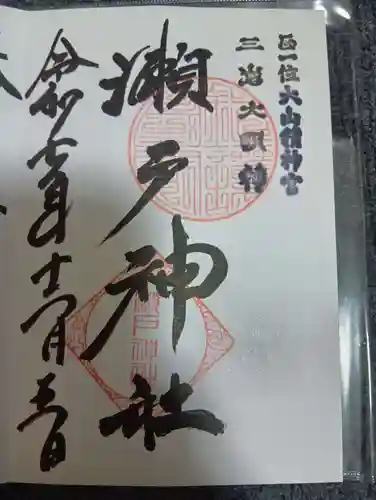 正一位大山積神宮
三島大明神
瀬戸神社
令和七年十一月三日